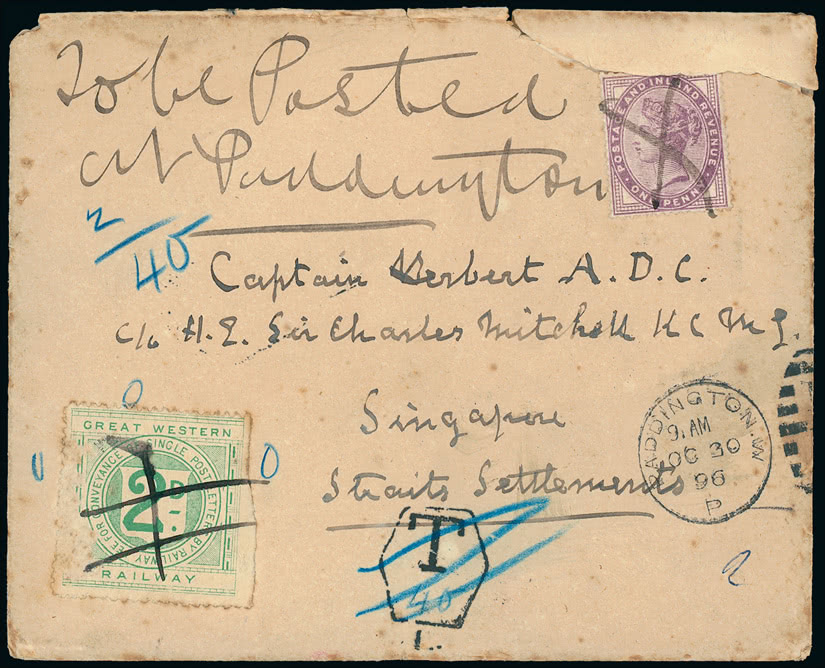 To be Posted
At Paddington
POSTAGE AND INLAND REVENUE
ONE PENNY
2
40
Captain Herbert A.D.C.
c/o H.E. Sir Charles Mitchell K C M G
Singapore
Straits Settlements
PADDINGTON.W
9.AM
OC 30
96
P
0
0
0
GREAT WESTERN
FEE FOR CONVEYANCE OF SINGLE POST LETTERS BY RAILWAY
2D.
RAILWAY
T
40
L.
2